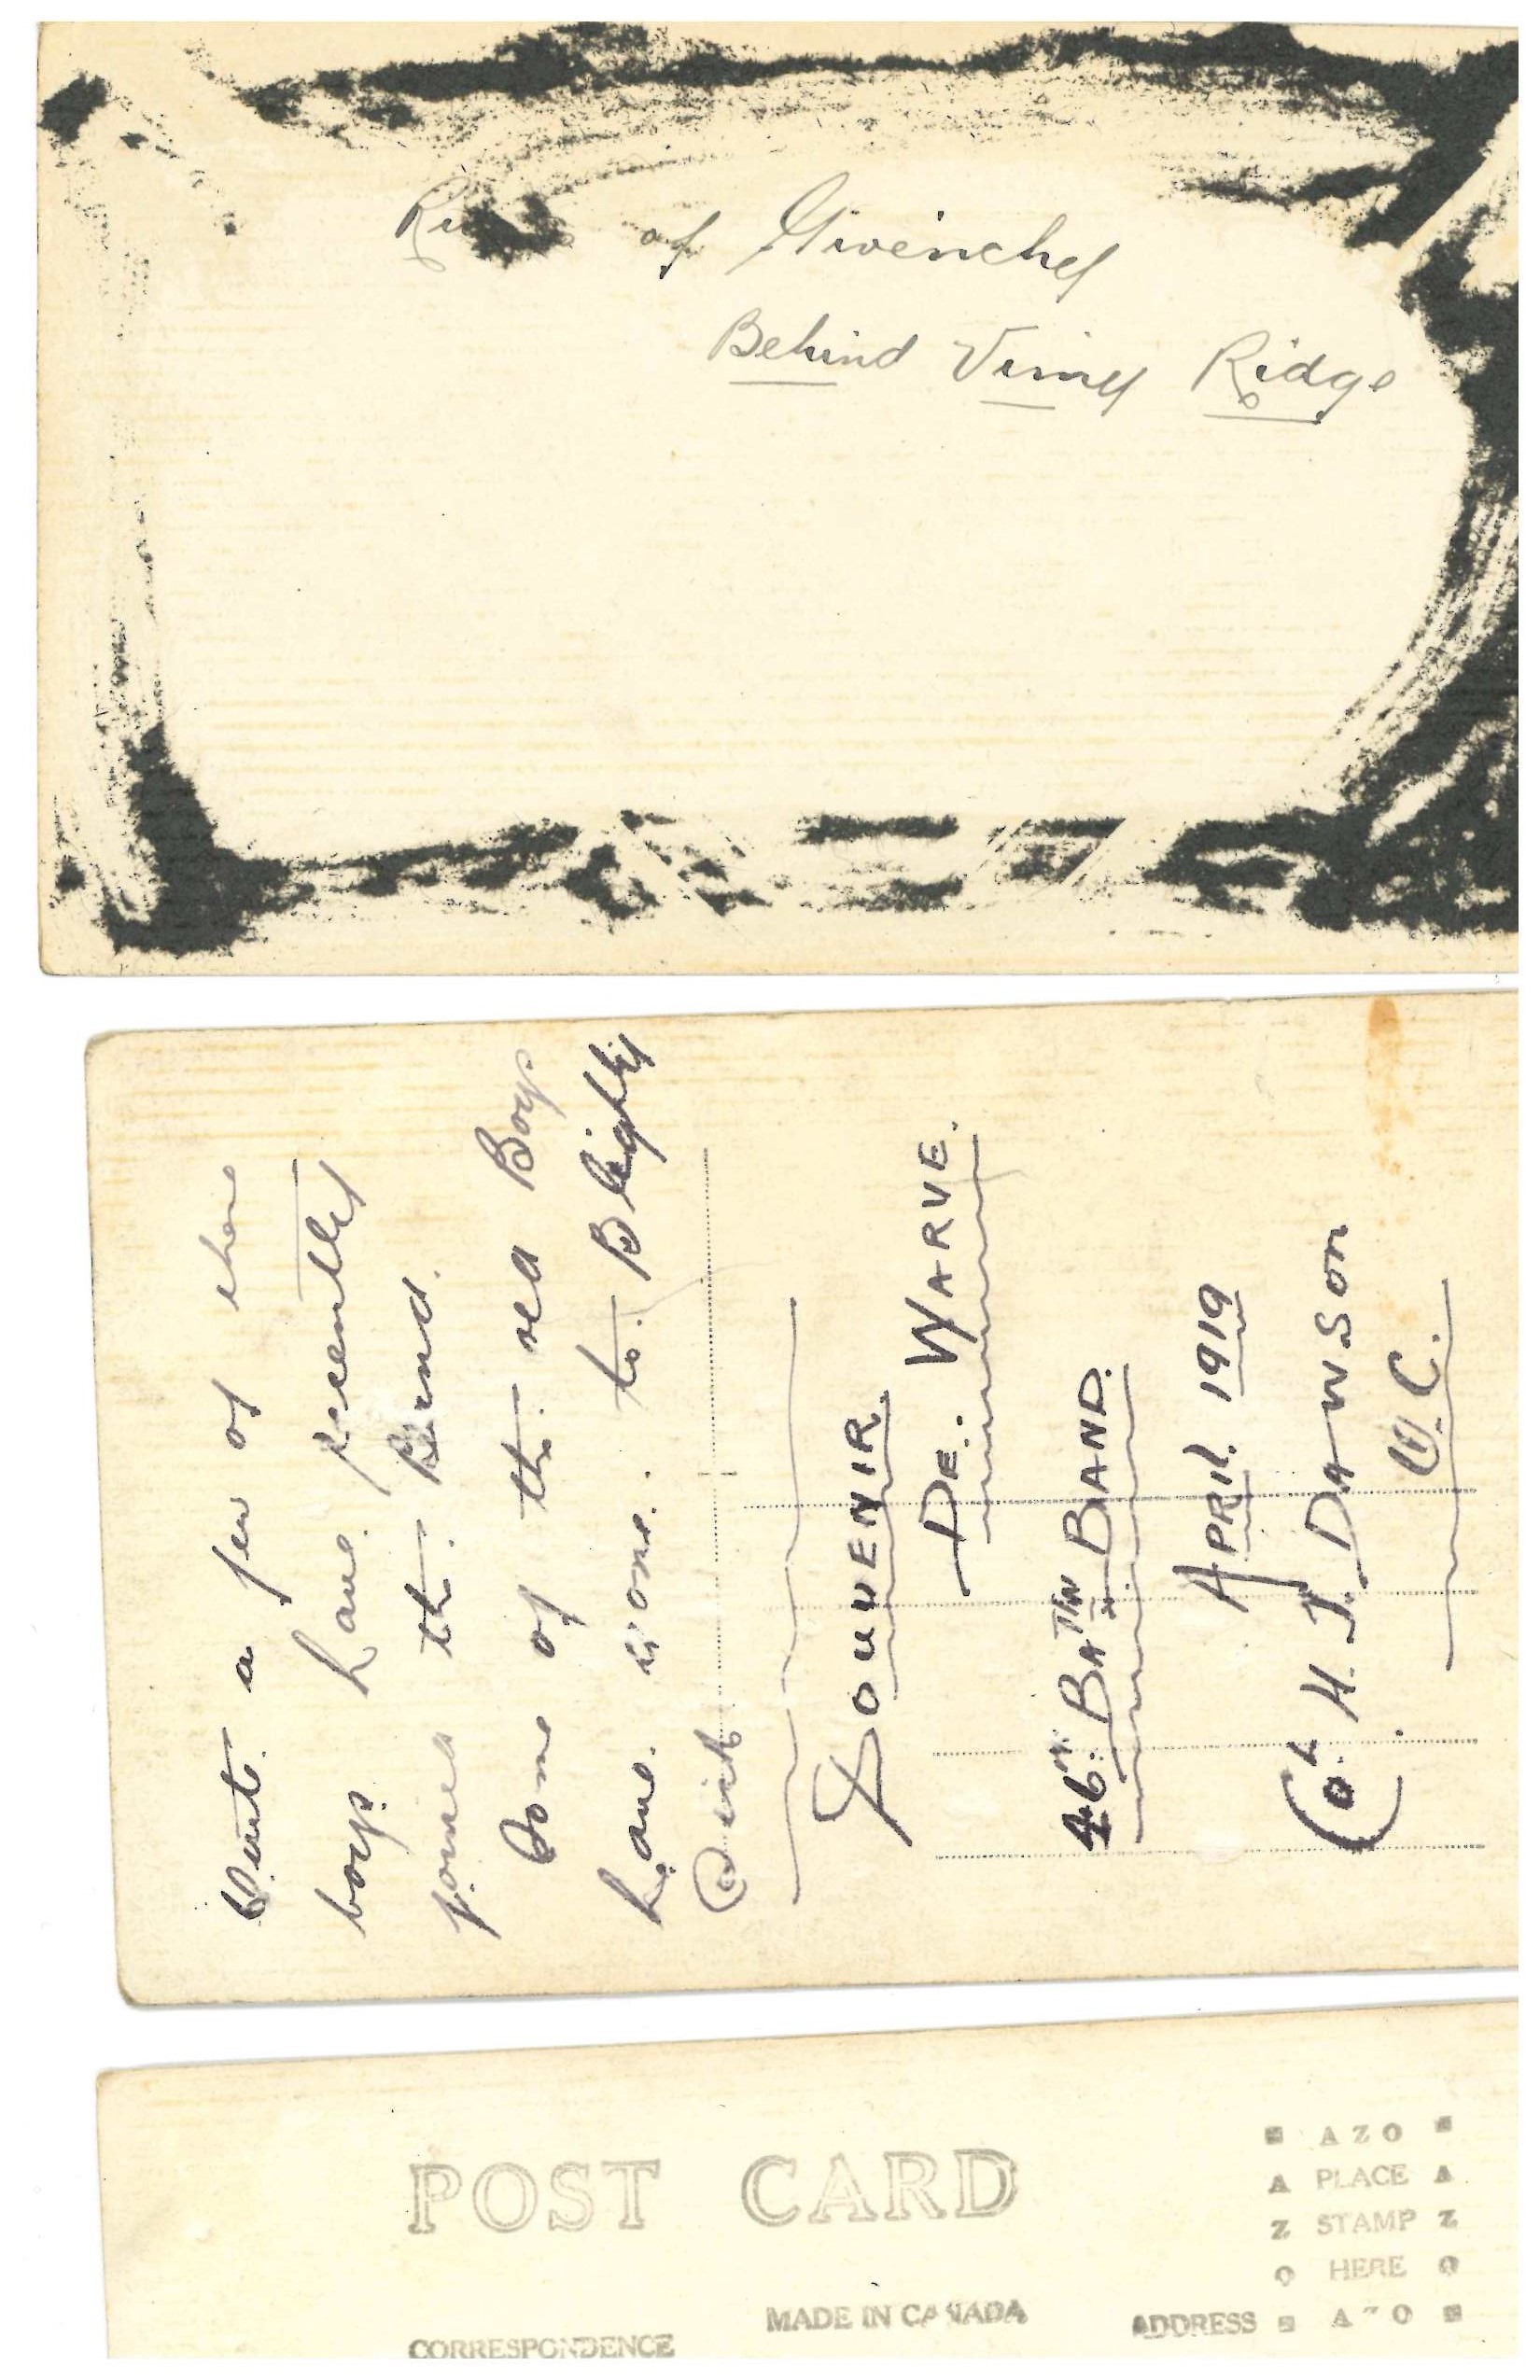 of Givenchy
Behind Vimy Ridge
Quite a few of these
boys have recently
joined the Band.
Some of the old Boys
have gone. to. Blighty
Sick
SOUVENIR.
DE. WARVE.
46TH. BATTN BAND.
APRIL. 1919
COL H. J. DAWSON
POST CARD
MADE IN CANADA
CORRESPONDENCE
ADDRESS
AZO
PLACE
STAMP
HERE
AZO